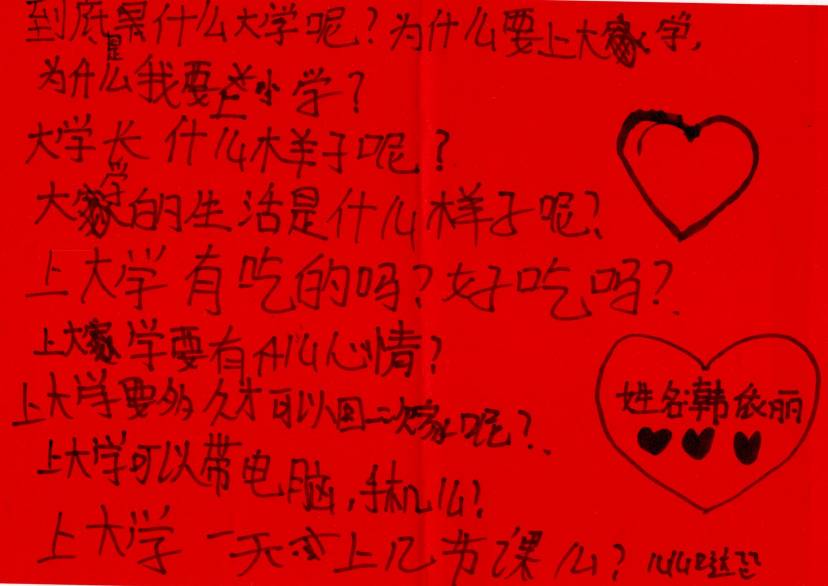 到底是什么大学呢？为什么要上大学，
为什么我要上小学？
大学长什么样子呢？
大学的生活是什么样子呢？
上大学有吃的吗？好吃吗？
上大学要有什么心情？
姓名韩依丽
上大学要多久才可以回一次家呢？
上大学可以带电脑，手机么？
上大学一天要上几节课么？